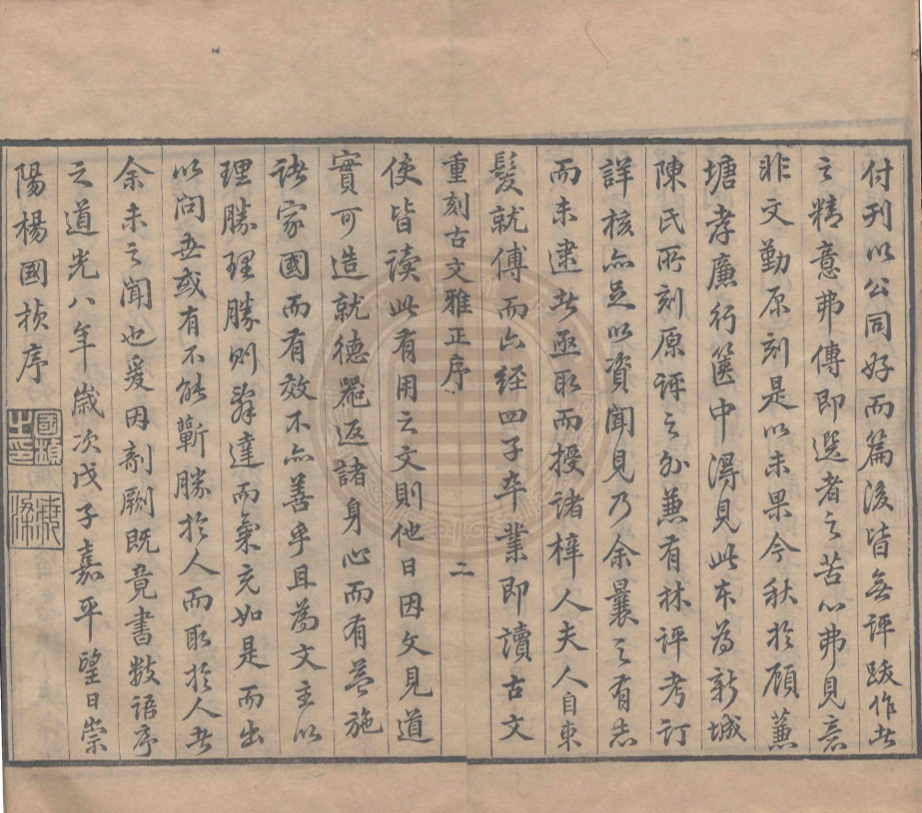 付刊以公同好而篇後皆無評跋作者
之精意弗傳即選者之苦心弗見意
非文勤原刻是以未果今秋於顧蒹
塘孝廉行篋中得見此本為新城
陳氏所刻原評之外兼有林評考訂
詳核亦足以資聞見乃余曩之有志
而未逮者亟取而授諸梓人夫人自束
髮就傅而六经四子卒業即讀古文
重刻古文雅正序
二
使皆讀此有用之文則他日因文見道
實可造就德器返諸身心而有益施
諸家國而有效不亦善乎且為文主以
理勝理勝則辭達而氣充如是而出
以問世或有不能蘄勝於人而取於人者
余未之聞也爰因剞劂既竟書數語序
之道光八年歲次戊子嘉平望日崇
陽楊國楨序
國楨之印
海梁